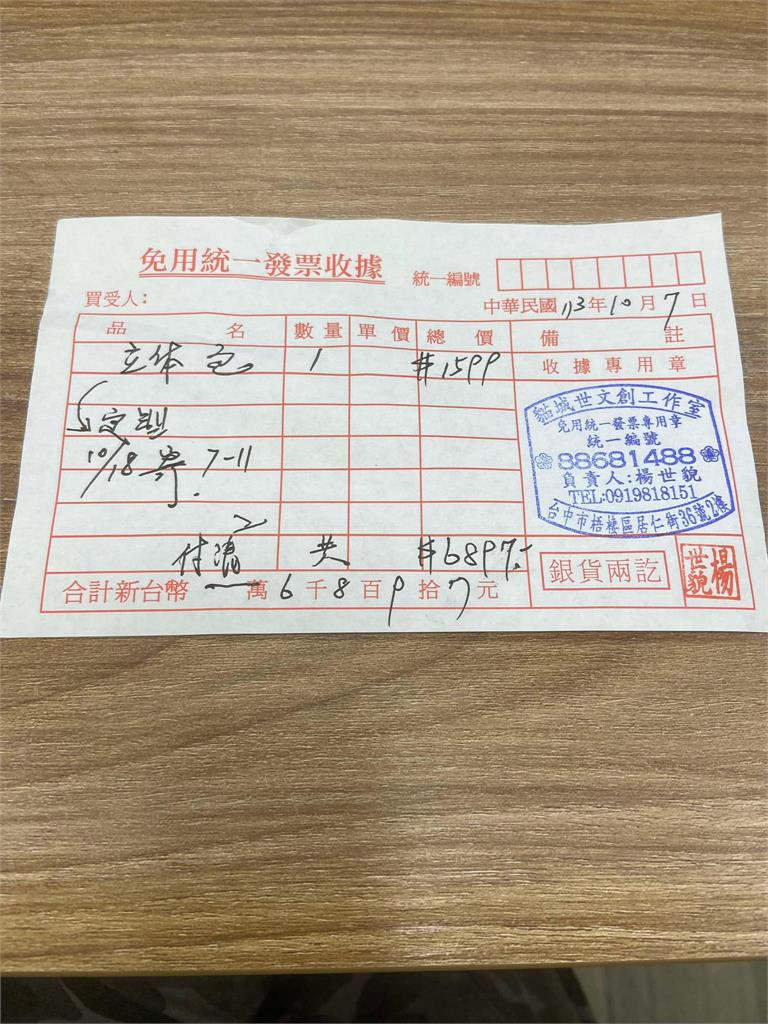 免用統一發票收據
統一編號
買受人：
中華民國113年10月7日
品名 數量 單價 總價 備註
立体包 1 #1599 收據專用章
貓城世文創工作室
免用統一發票專用章
統一編號
88681488
負責人:楊世貌
TEL:0919818151
台中市梧棲區居仁街36號2樓
定型
10/18寄 7-11
付清 共 #6897.-
銀貨兩訖
楊世貌
合計新台幣 萬6千8百9拾7元